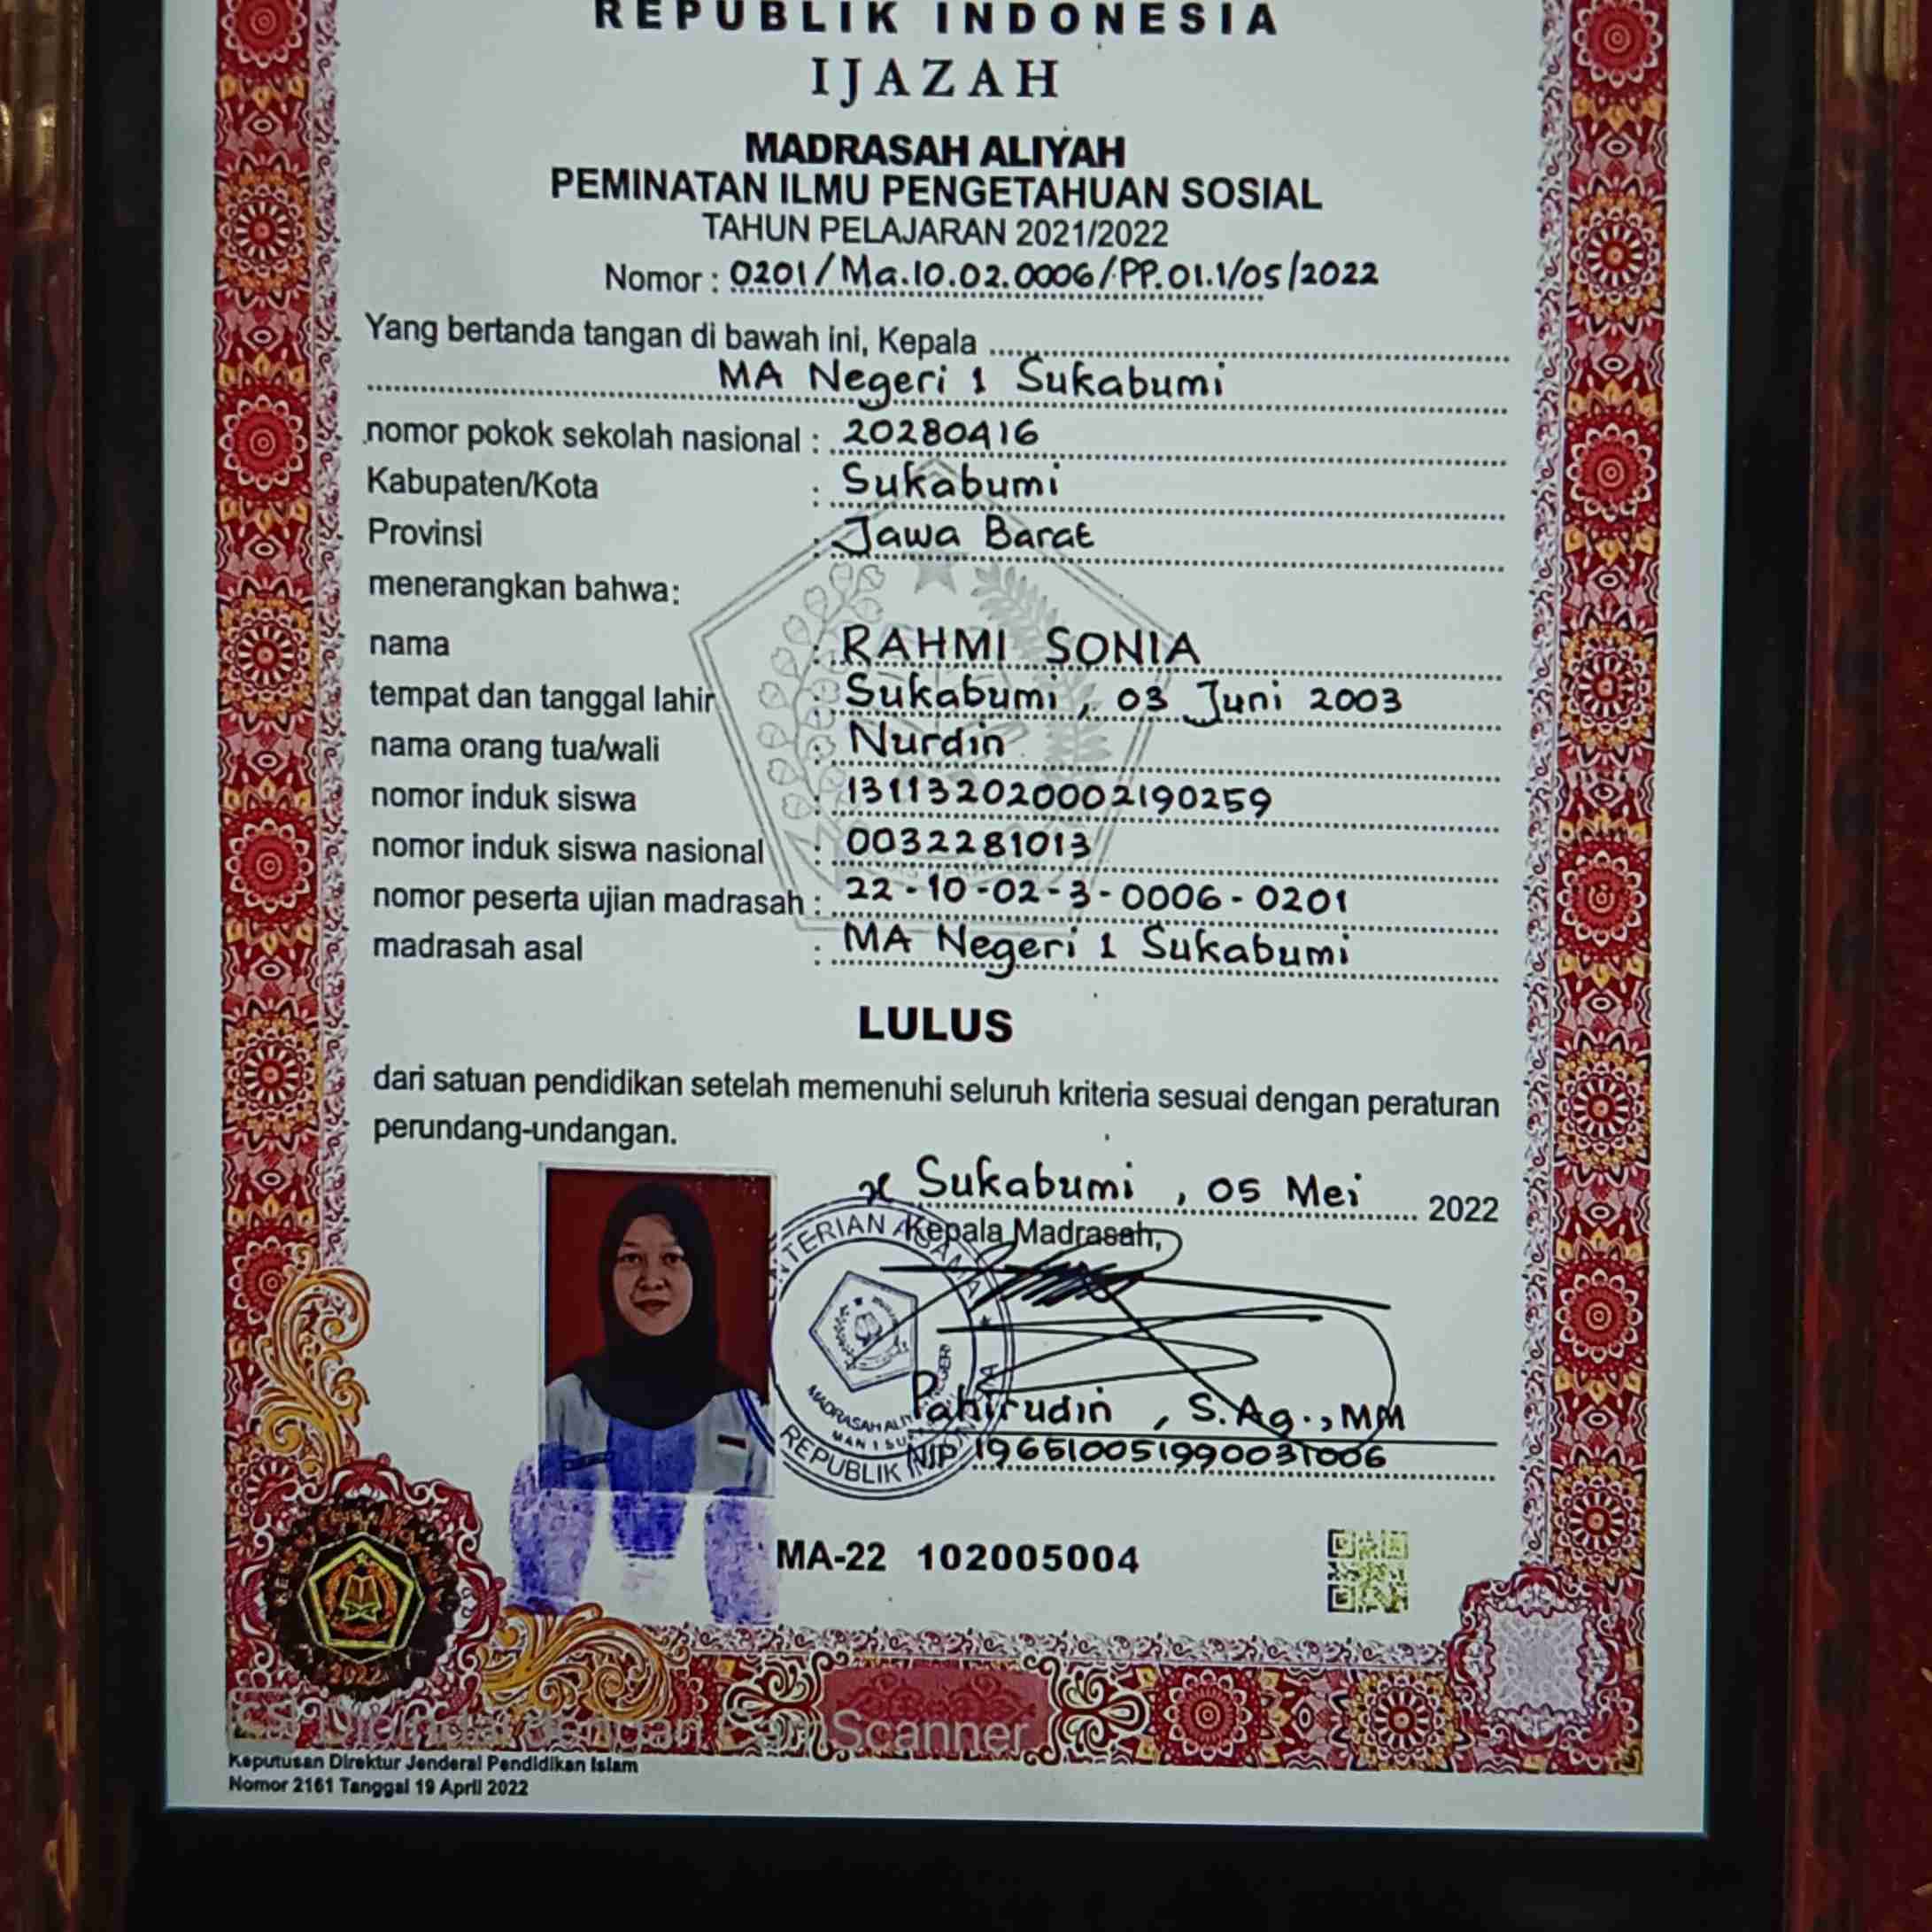 REPUBLIK INDONESIA
IJAZAH
MADRASAH ALIYAH
PEMINATAN ILMU PENGETAHUAN SOSIAL
TAHUN PELAJARAN 2021/2022
Nomor : 0201/Ma.10.02.0006/PP.01.1/05/2022
Yang bertanda tangan di bawah ini, Kepala
MA Negeri 1 Sukabumi
nomor pokok sekolah nasional : 20280416
Kabupaten/Kota : Sukabumi
Provinsi : Jawa Barat
menerangkan bahwa:
nama : RAHMI SONIA
tempat dan tanggal lahir : Sukabumi, 03 Juni 2003
nama orang tua/wali : Nurdin
nomor induk siswa : 131132020002190259
nomor induk siswa nasional : 0032281013
nomor peserta ujian madrasah : 22-10-02-3-0006-0201
madrasah asal : MA Negeri 1 Sukabumi
LULUS
dari satuan pendidikan setelah memenuhi seluruh kriteria sesuai dengan peraturan
perundang-undangan.
Sukabumi, 05 Mei 2022
Kepala Madrasah,
Pahirudin, S.Ag., MM
NIP 196510051990031006
MA-22 102005004
2022
CS Dipindai dengan CamScanner
Keputusan Direktur Jenderal Pendidikan Islam
Nomor 2161 Tanggal 19 April 2022